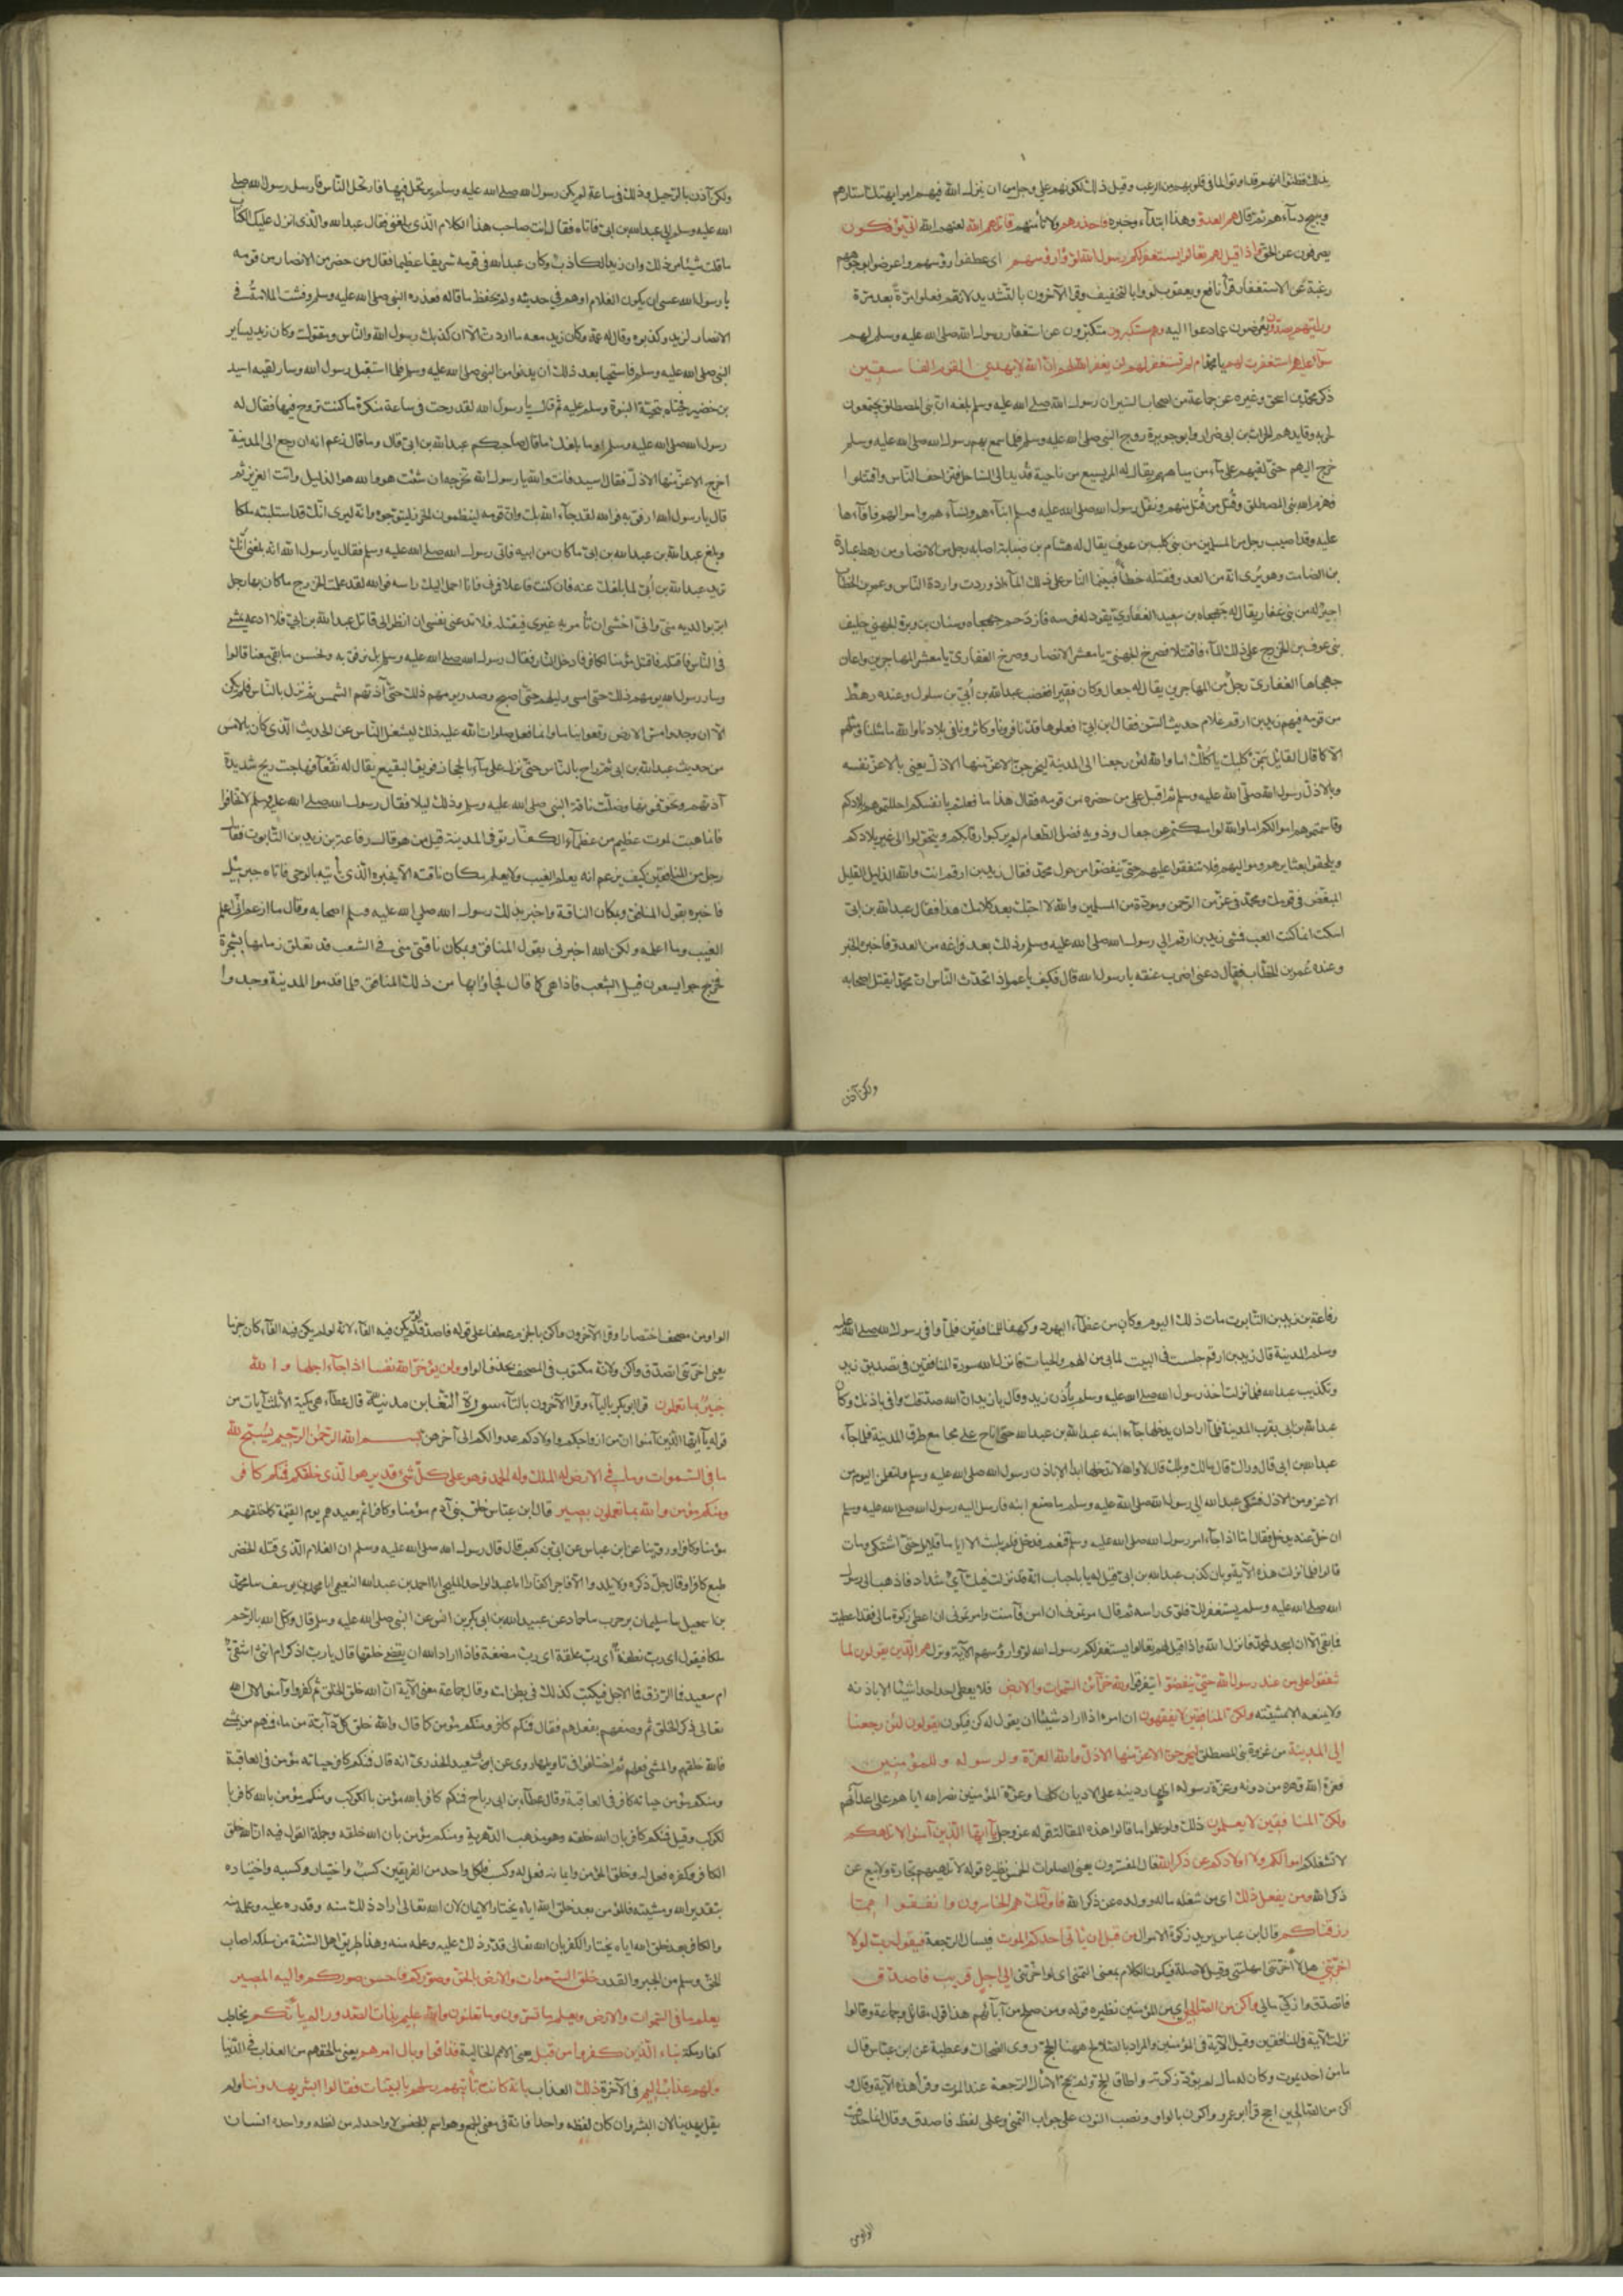 بذلك فظنوا انهم قد اوتوا لما في قلوبهم من الرعب وقيل ذلك لكونهم على وجل من ان ينزل الله فيهم امرا يهتك استارهم
ويبيح دماءهم ثم قال هم العدو وهذا ابتداء وخبره فاحذرهم ولا تأمنهم قاتلهم الله لعنهم الله انى يؤفكون
يصرفون عن الحق واذا قيل لهم تعالوا يستغفر لكم رسول الله لووا رؤسهم اى عطفوا رؤسهم واعرضوا بوجوههم
رغبة عن الاستغفار قرأ نافع ويعقوب لووا بالتخفيف وقرأ الآخرون بالتشديد لانهم فعلوا مرة بعد مرة
ورايتهم يصدون يعرضون عما دعوا اليه وهم مستكبرون متكبرون عن استغفار رسول الله صلى الله عليه وسلم لهم
سواء عليهم استغفرت لهم يا محمد ام لم تستغفر لهم لن يغفر الله لهم ان الله لا يهدي القوم الفاسقين
ذكر محمد بن اسحق وغيره عن جماعة من اصحاب السير ان رسول الله صلى الله عليه وسلم بلغه ان بنى المصطلق يجتمعون
لحربه وقايدهم الحارث بن ابى ضرار وابو جويرة زوج النبى صلى الله عليه وسلم فلما سمع بهم رسول الله صلى الله عليه وسلم
خرج اليهم حتى لقيهم على ماء من مياههم يقال له المريسيع من ناحية قديد الى الساحل فتزاحف الناس واقتتلوا
فهزم الله بنى المصطلق وقتل من قتل منهم ونقل رسول الله صلى الله عليه وسلم ابناءهم ونساءهم واموالهم فافاءها
عليه وقد اصيب رجل من المسلمين من بنى كلب بن عوف يقال له هشام بن ضبابة اصابه رجل من الانصار من رهط عبادة
بن الصامت وهو يرى انه من العدو فقتله خطأ فبينما الناس على ذلك الماء اذ وردت واردة الناس وعمر بن الخطاب
اجير له من بنى غفار يقال له جهجاه بن سعيد الغفاري يقود له فرسه فازدحم جهجاه وسنان بن وبرة الجهنى حليف
بنى عوف بن الخزرج على ذلك الماء فاقتتلا فصرخ الجهنى يا معشر الانصار وصرخ الغفارى يا معشر المهاجرين واعان
جهجاها الغفارى رجل من المهاجرين يقال له جعال وكان فقيرا فغضب عبد الله بن أبي بن سلول وعنده رهط
من قومه فيهم زيد بن ارقم غلام حديث السن فقال ابن ابى افعلوها قد نافرونا وكاثرونا فى بلادنا والله ما مثلنا ومثلهم
الا كما قال القايل سمن كلبك يأكلك اما والله لئن رجعنا الى المدينة ليخرجن الاعز منها الاذل يعنى بالاعز نفسه
وبالاذل رسول الله صلى الله عليه وسلم ثم اقبل على من حضره من قومه فقال هذا ما فعلتم بانفسكم احللتموهم بلادكم
وقاسمتموهم اموالكم اما والله لو امسكتم عن جعال وذويه فضل الطعام لم يركبوا رقابكم وتحولوا الى غير بلادكم
ويلحقوا بعشايرهم ومواليهم فلا تنفقوا عليهم حتى ينفضوا من حول محمد فقال زيد بن ارقم انت والله الذليل القليل
المبغض فى قومك ومحمد فى عز من الرحمن ومودة من المسلمين والله لا احبك بعد كلامك هذا فقال عبد الله بن ابى
اسكت انما كنت العب فمشى زيد بن ارقم الى رسول الله صلى الله عليه وسلم وذلك بعد فراغه من العدو فاخبره الخبر
وعنده عمر بن الخطاب فقال دعنى اضرب عنقه يا رسول الله قال فكيف يا عمر اذا تحدث الناس ان محمدا يقتل اصحابه
ولكن آذن
ولكن آذن بالرحيل وذلك فى ساعة لم يكن رسول الله صلى الله عليه وسلم يرتحل فيها فارتحل الناس فارسل رسول الله صلى
الله عليه وسلم الى عبد الله بن ابى فاتاه فقال انت صاحب هذا الكلام الذى بلغنى فقال عبد الله والذى انزل عليك الكتاب
ما قلت شيئا من ذلك وان زيدا لكاذب وكان عبد الله فى قومه شريفا عظيما فقال من حضر من الانصار من قومه
يا رسول الله عسى ان يكون الغلام اوهم فى حديثه ولم يحفظ ما قاله فعذره النبى صلى الله عليه وسلم وفشت الملامة فى
الانصار لزيد وكذبوه وقال له عمه وكان زيد معه ما اردت الا ان كذبك رسول الله والناس ومقتوك وكان زيد يساير
النبى صلى الله عليه وسلم فاستحيا بعد ذلك ان يدنوا من النبى صلى الله عليه وسلم فلما استقبل رسول الله وسار لقيه اسيد
بن حضير فحياه بتحية النبوة وسلم عليه ثم قال يا رسول الله لقد رحت فى ساعة منكرة ما كنت تروح فيها فقال له
رسول الله صلى الله عليه وسلم اوما بلغك ما قال صاحبكم عبد الله بن ابى قال وما قال زعم انه ان رجع الى المدينة
اخرج الاعز منها الاذل فقال اسيد فانت والله يا رسول الله تخرجه ان شئت هو والله هو الذليل وانت العزيز ثم
قال يا رسول الله ارفق به فوالله لقد جاء الله بك وان قومه لينظمون الخرز ليتوجوه وانه ليرى انك قد استلبته ملكا
وبلغ عبد الله بن عبد الله بن ابى ما كان من ابيه فاتى رسول الله صلى الله عليه وسلم فقال يا رسول الله انه بلغنى انك
تريد عبد الله بن أبى لما بلغك عنه فان كنت فاعلا فمرنى فانا احمل اليك راسه فوالله لقد علمت الخزرج ما كان بها رجل
ابر بوالديه منى وانى اخشى ان تأمر به غيرى فيقتله فلا تدعنى نفسى ان انظر الى قاتل عبد الله بن ابى يمشى
فى الناس فاقتله فاقتل مؤمنا بكافر فادخل النار فقال رسول الله صلى الله عليه وسلم بل نرفق به ونحسن ما بقى معنا قالوا
وسار رسول الله يومهم ذلك حتى امسى وليلهم حتى اصبح وصدر يومهم ذلك حتى آذتهم الشمس ثم نزل بالناس فلم يكن
الا ان وجدوا مس الارض وقعوا نياما وانما فعل صلوات الله عليه ذلك ليشغل الناس عن الحديث الذى كان بالامس
من حديث عبد الله بن ابى ثم راح بالناس حتى نزل على ماء بالحجاز فويق البقيع يقال له نقعاء فهاجت ريح شديدة
آذتهم وتخوفوها وضلت ناقة النبى صلى الله عليه وسلم وذلك ليلا فقال رسول الله صلى الله عليه وسلم لا تخافوا
فانما هبت لموت عظيم من عظماء الكفار توفى المدينة قيل من هو قال رفاعة بن زيد بن التابوت فقال
رجل من المنافقين كيف يزعم انه يعلم الغيب ولا يعلم مكان ناقته الا يخبره الذى يأتيه بالوحى فاتاه جبريل
فاخبره بقول المنافق وبمكان الناقة واخبر بذلك رسول الله صلى الله عليه وسلم اصحابه وقال ما ازعم انى اعلم
الغيب وما اعلمه ولكن الله اخبرنى بقول المنافق وبمكان ناقتى هى فى الشعب قد تعلق زمامها بشجرة
فخرجوا يسعون قبل الشعب فاذا هى كما قال فجاؤا بها من ذلك المنافق فلما قدموا المدينة وجدوا
رفاعة بن زيد بن التابوت مات ذلك اليوم وكان من عظماء اليهود وكهفا للمنافقين فلما وافى رسول الله صلى الله عليه
وسلم المدينة قال زيد بن ارقم جلست فى البيت لما بى من الهم والحياء فانزل الله سورة المنافقين فى تصديق زيد
وتكذيب عبد الله فلما نزلت اخذ رسول الله صلى الله عليه وسلم بأذن زيد وقال يا زيد ان الله صدقك واوفى باذنك وكان
عبد الله بن ابى بقرب المدينة فلما اراد ان يدخلها جاءه ابنه عبد الله بن عبد الله حتى اناخ على مجامع طرق المدينة فلما جاء
عبد الله بن ابى قال وراك قال مالك ويلك قال لا والله لا تدخلها ابدا الا باذن رسول الله صلى الله عليه وسلم ولتعلمن اليوم من
الاعز ومن الاذل فشكى عبد الله الى رسول الله صلى الله عليه وسلم ما صنع ابنه فارسل اليه رسول الله صلى الله عليه وسلم
ان خل عنه يدخل فقال اما اذا جاء امر رسول الله صلى الله عليه وسلم فنعم فدخل فلم يلبث الا اياما قلايل حتى اشتكى ومات
قالوا فلما نزلت هذه الآية وبان كذب عبد الله بن ابى قيل له يا باحباب انه قد نزلت فيك آى شداد فاذهب الى رسول
الله صلى الله عليه وسلم يستغفر لك فلوى راسه ثم قال امرتمونى ان اومن فآمنت وامرتمونى ان اعطى زكوة مالى فقد اعطيت
فما بقى الا ان اسجد لمحمد فانزل الله واذا قيل لهم تعالوا يستغفر لكم رسول الله لووا رؤسهم الآية ونزل هم الذين يقولون لا
تنفقوا على من عند رسول الله حتى ينفضوا ليتفرقوا ولله خزائن السموات والارض فلا يعطى احد احدا شيئا الا باذنه
ولا يمنعه الا بمشيئته ولكن المنافقين لا يفقهون ان امره اذا اراد شيئا ان يقول له كن فيكون يقولون لئن رجعنا
الى المدينة من غزوة بنى المصطلق ليخرجن الاعز منها الاذل ولله العزة ولرسوله وللمؤمنين
فعزة الله قهره من دونه وعزة رسوله اظهار دينه على الاديان كلها وعزة المؤمنين نصر الله اياهم على اعدائهم
ولكن المنافقين لا يعلمون ذلك ولو علموا ما قالوا هذه المقالة قوله عز وجل يا ايها الذين آمنوا لا تلهكم
لا تشغلكم اموالكم ولا اولادكم عن ذكر الله قال المفسرون يعنى الصلوات الخمس نظيره قوله لا تلهيهم تجارة ولا بيع عن
ذكر الله ومن يفعل ذلك اى من شغله ماله وولده عن ذكر الله فاولئك هم الخاسرون وانفقوا مما
رزقناكم قال ابن عباس يريد زكوة الاموال من قبل ان يأتى احدكم الموت فيسال الرجعة فيقول رب لولا
اخرتنى هلا اخرتنى امهلتنى وقيل لا صلة فيكون الكلام بمعنى التمنى اى لو اخرتنى الى اجل قريب فاصدق
فاتصدق وازكى مالى واكن من الصالحين اى من المؤمنين نظيره قوله ومن صلح من آبائهم هذا قول مقاتل وجماعة وقالوا
نزلت الآية فى المنافقين وقيل الآية فى المؤمنين والمراد بالصلاح ههنا الحج وروى الضحاك وعطية عن ابن عباس قال
ما من احد يموت وكان له مال لم يؤد زكوته واطاق الحج ولم يحج الا سأل الرجعة عند الموت وقرأ هذه الآية وقال و
اكن من الصالحين احج قرأ ابو عمرو واكون بالواو ونصب النون على جواب التمنى وعلى لفظ فاصدق وقال انما حذفت
الواو من
الواو من مصحف اختصارا وقرأ الآخرون واكن بالجزم عطفا على قوله فاصدق لو لم يكن فيه الفاء لانه لو لم يكن فيه الفاء كان جزما
يعنى اخرتنى اتصدق واكن ولانه مكتوب فى المصحف بحذف الواو ولن يؤخر الله نفسا اذا جاء اجلها والله
خبير بما تعملون قرأ ابو بكر بالياء وقرأ الآخرون بالتاء سورة التغابن مدنية قال عطاء هى مكية الا ثلث آيات من
قوله يا ايها الذين آمنوا ان من ازواجكم واولادكم عدوا لكم الى آخرهن بسم الله الرحمن الرحيم يسبح لله
ما فى السموات وما فى الارض له الملك وله الحمد وهو على كل شئ قدير هو الذى خلقكم فمنكم كافر
ومنكم مؤمن والله بما تعملون بصير قال ابن عباس خلق بنى آدم مؤمنا وكافرا ثم يعيدهم يوم القيمة كما خلقهم
مؤمنا وكافرا وروينا عن ابن عباس عن ابى بن كعب قال قال رسول الله صلى الله عليه وسلم ان الغلام الذى قتله الخضر
طبع كافرا وقال جل ذكره ولا يلدوا الا فاجرا كفارا اما عبد الواحد المليحى ابا احمد بن عبد الله النعيمى ابا محمد بن يوسف سا محمد
بن اسمعيل سا سليمان بن حرب سا حماد عن عبيد الله بن ابى بكر بن انس عن النبى صلى الله عليه وسلم قال وكل الله بالرحم
ملكا فيقول اى رب نطفة اى رب علقة اى رب مضغة فاذا اراد الله ان يقضى خلقها قال يا رب اذكر ام انثى اشقى
ام سعيد فما الرزق فما الاجل فيكتب كذلك فى بطن امه وقال جماعة معنى الآية ان الله خلق الخلق ثم كفروا وآمنوا لان الله
تعالى ذكر الخلق ثم وصفهم بفعلهم فقال فمنكم كافر ومنكم مؤمن كما قال والله خلق كل دابة من ماء فمنهم من يمشى
فالله خلقهم والمشى فعلهم ثم اختلفوا فى تاويلها روى عن ابى سعيد الخدرى انه قال فمنكم كافر حياته مؤمن فى العاقبة
ومنكم مؤمن حياته كافر فى العاقبة وقال عطاء بن ابى رباح فمنكم كافر بالله مؤمن بالكوكب ومنكم مؤمن بالله كافر با
لكوكب وقيل فمنكم كافر بان الله خلقه وهو مذهب الدهرية ومنكم مؤمن بان الله خلقه وجملة القول فيه ان الله خلق
الكافر وكفره فعل له وخلق المؤمن وايمانه فعل له وكسب فلكل واحد من الفريقين كسب واختيار وكسبه واختياره
بتقدير الله ومشيئته فالمؤمن بعد خلق الله اياه يختار الايمان لان الله تعالى اراد ذلك منه وقدره عليه وعلمه منه
والكافر بعد خلق الله اياه يختار الكفر بان الله تعالى قدر ذلك عليه وعلمه منه وهذا طريق اهل السنة من سلكه اصاب
الحق وسلم من الجبر والقدر خلق السموات والارض بالحق وصوركم فاحسن صوركم واليه المصير
يعلم ما فى السموات والارض ويعلم ما تسرون وما تعلنون والله عليم بذات الصدور الم يأتكم يخاطب
كفار مكة نباء الذين كفروا من قبل يعنى الامم الخالية فذاقوا وبال امرهم يعنى ما لحقهم من العذاب فى الدنيا
ولهم عذاب اليم فى الآخرة ذلك العذاب بانه كانت تأتيهم رسلهم بالبينات فقالوا ابشر يهدوننا ولم
يقل يهدينا لان البشر وان كان لفظه واحدا فانه فى معنى الجمع وهو اسم الجنس لا واحد له من لفظه وواحده انسان